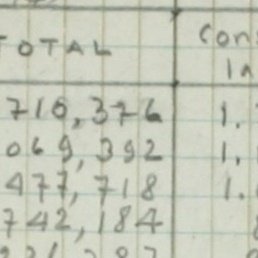 TOTAL Con
In
710,376 1.
069,392 1.
477,718 1.
742,184